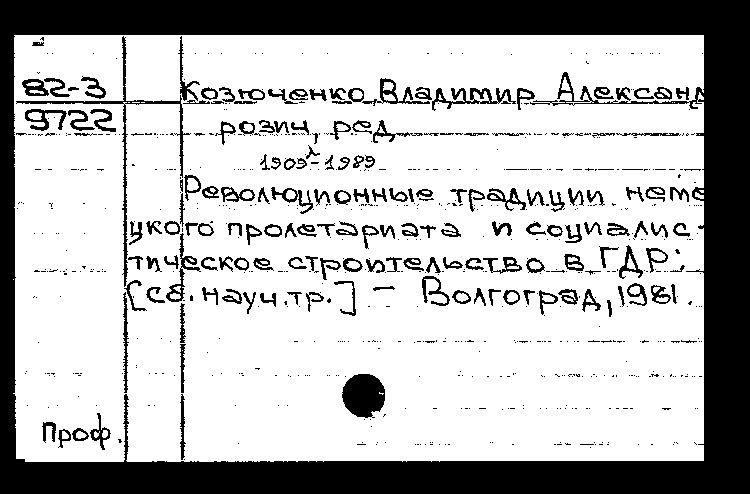 82-3
9722
Козюченко, Владимир Александ
розич, ред.
1909-1989
Революционные традиции неме
цкого пролетариата и социалис-
тическое строительство в ГДР:
[Сб. науч. тр.] – Волгоград, 1981.
Проф.